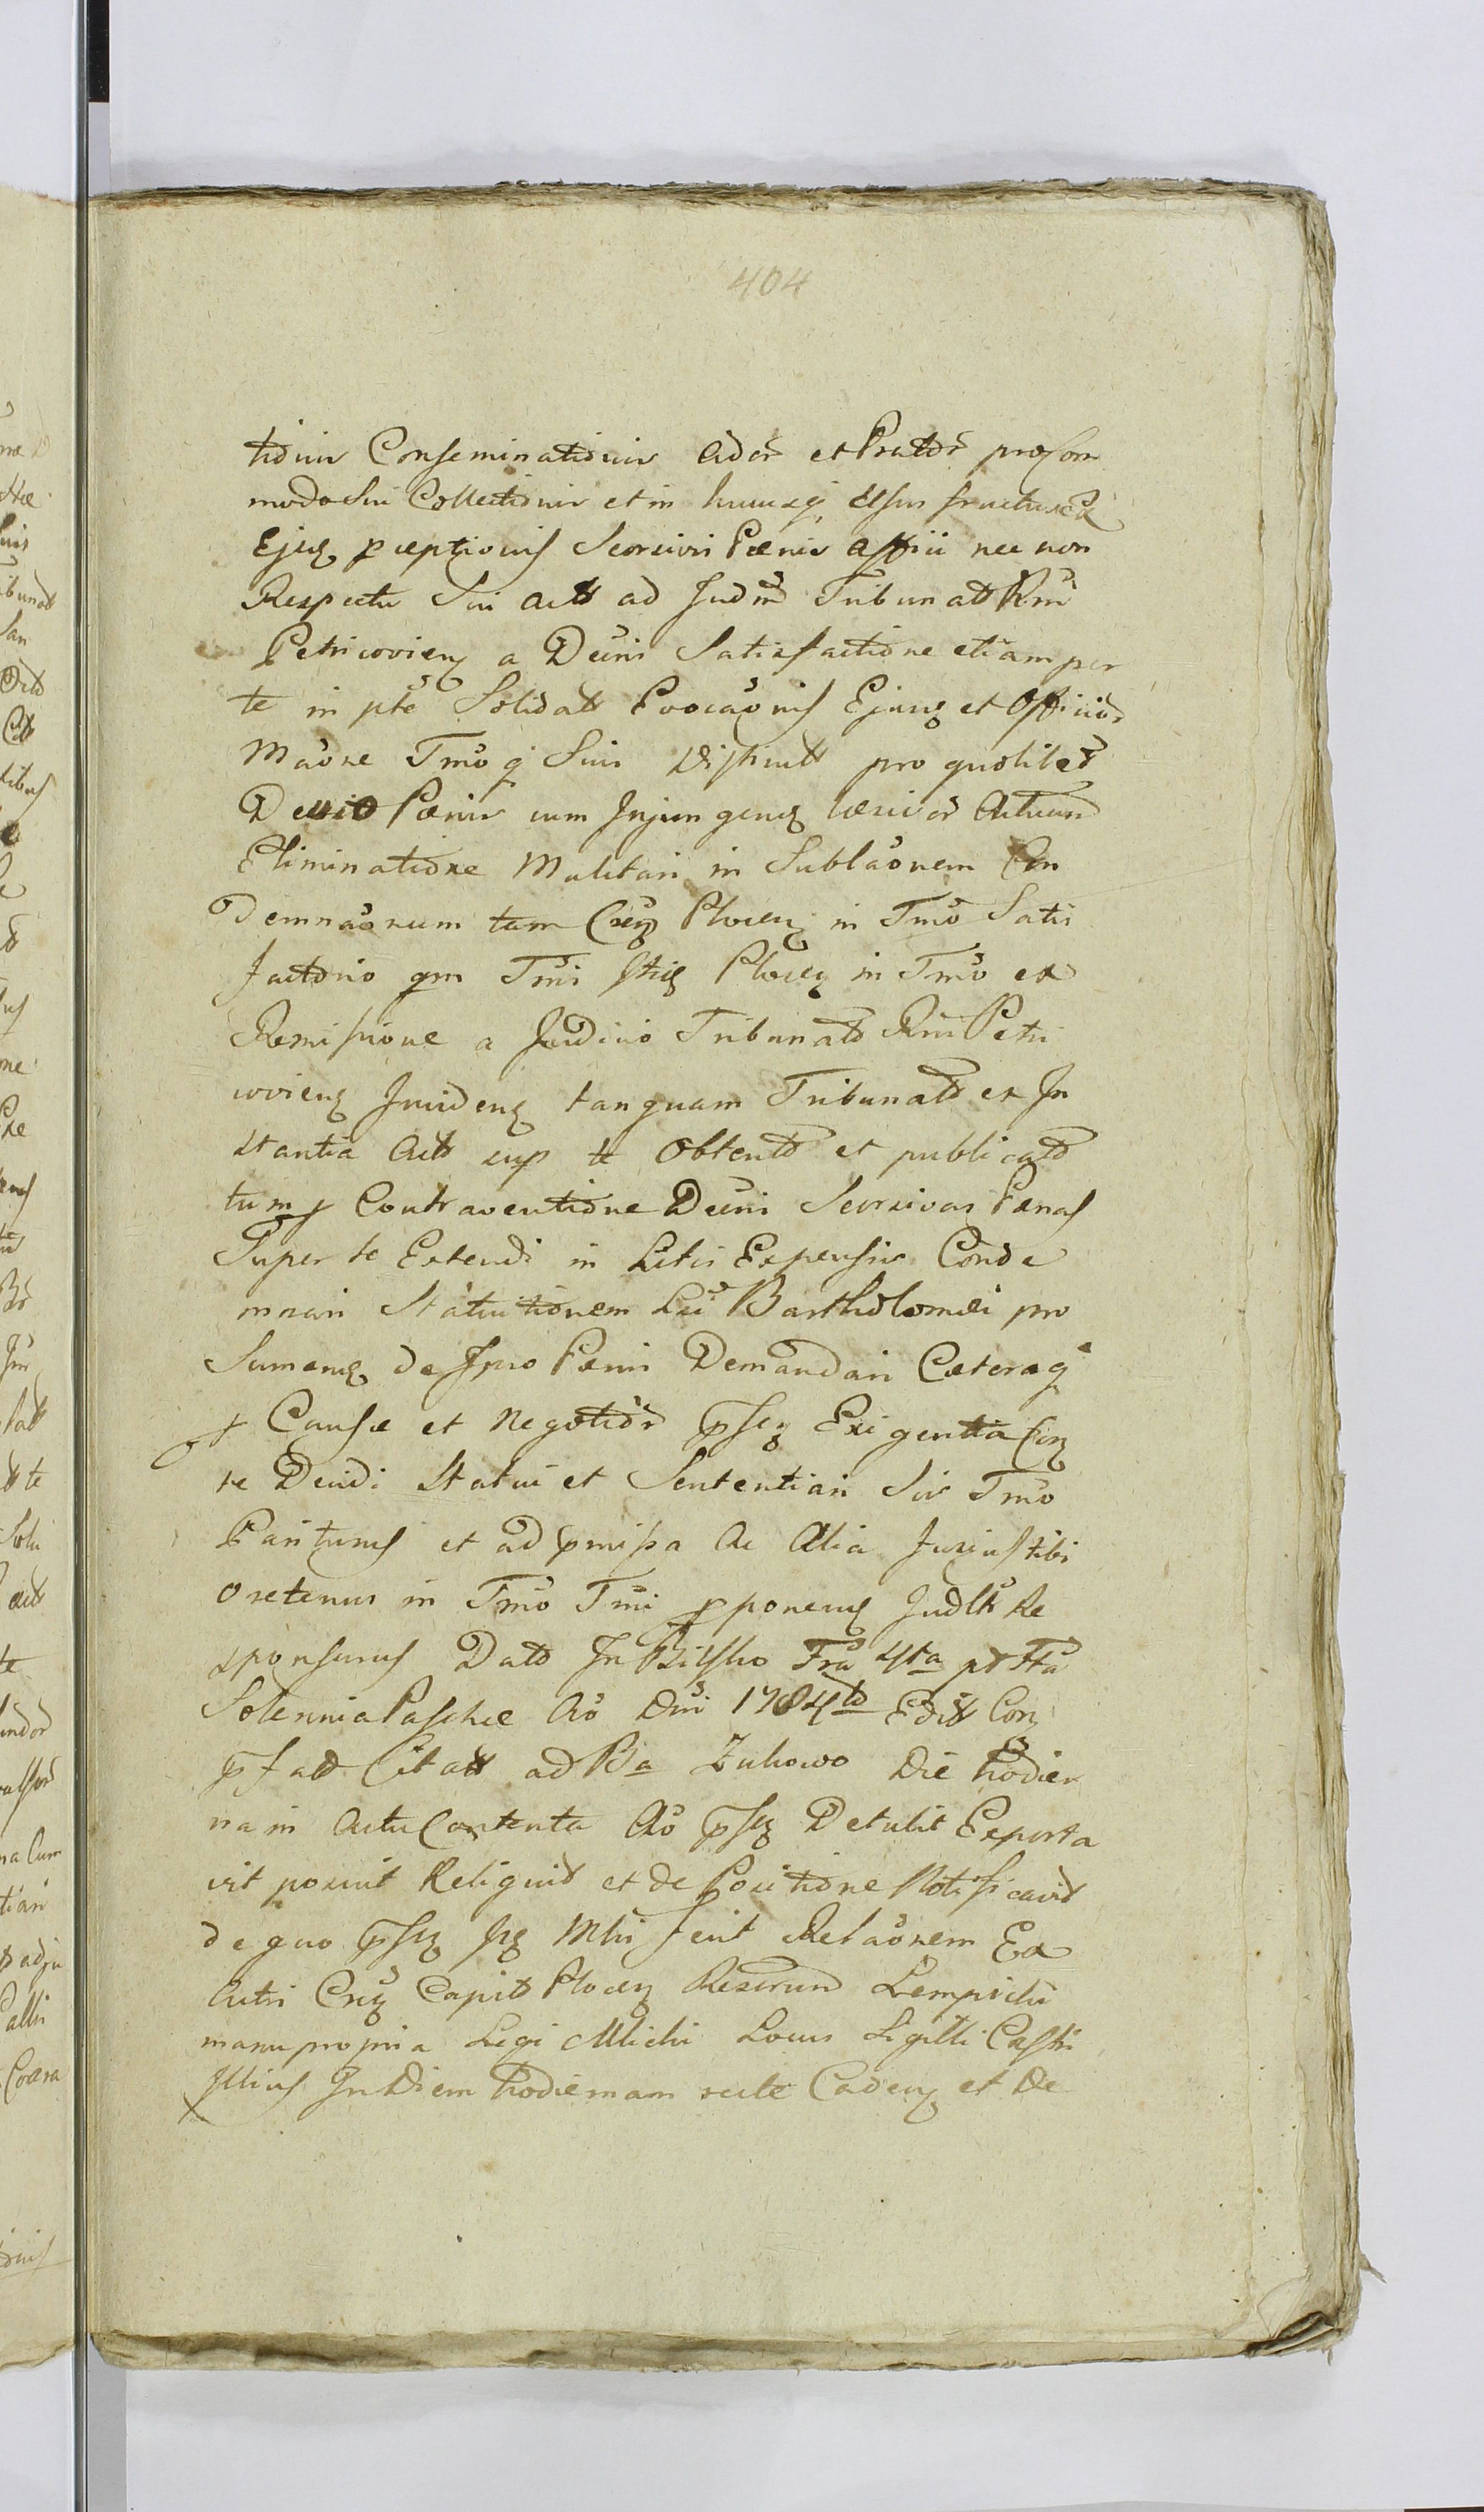 404
tionis Conseminationis Ador et Prator pro Com
modo Sui Collectionis et in huncq Usus fructuseq
Ejusq pceptionis Seorsivis Pœnis affici nec non
Respectu Sui actt ad Judm Tribunatt Rni
Petricovienq a Decni Satisfactione etiam per
te in pte Solidatt Evocaonis Ejusq et Officiod
Maone Tmoq Suis Distinctt pro quolibet
Decreto Pœnis cum Injungenq læsivor Actuum
Eliminatione Mulctari in Sublaonem Con
demnaonum tam Csenq Plocenq in Tmo Satis
factorio qm Tmi Plocenq in Tmo ex
Remissione a Judicio Tribunatt Rni Petri
covienq Incidenq tanquam Tribunatt ex In
stantia Actt sup te Obtentt et publicatt
tum Contraventione Decni Seorsivas Pœnas
Super te Extendi in Litis Expensis Conde
mnari Statuitionem Lii Bartholomæi pro
Sumenq de Ipso Pœnis Demandari Cæteraq
Causæ et Negotior pseq Exigentia Conq
te Decidi Statui et Sententiari Sis Tmo
Pariturus et ad pmissa Ac Alia Juriustibi
oretenus in Tmo Tmi pponenq Judltr Re
sponsurus Datt In Bilsko Fra 4ta pt Fta
Solennia Paschæ Ao Dni 1784to Edit Conq
pfatt Citatt ad Ba Zukowo Die hodier
na in Actu Contenta Ao pseq Detulit Exporta
vit posuit Reliquit et de Positione Notificavit
de quo pseq Mhi fecit Relaonem Ex
Actis Csenq Capitt Plocenq Rescrun Lempicki
manu propria Legi Mlicki Locus Sigilli Castri
Illius In Diem hodiernam recte Cadenq et De